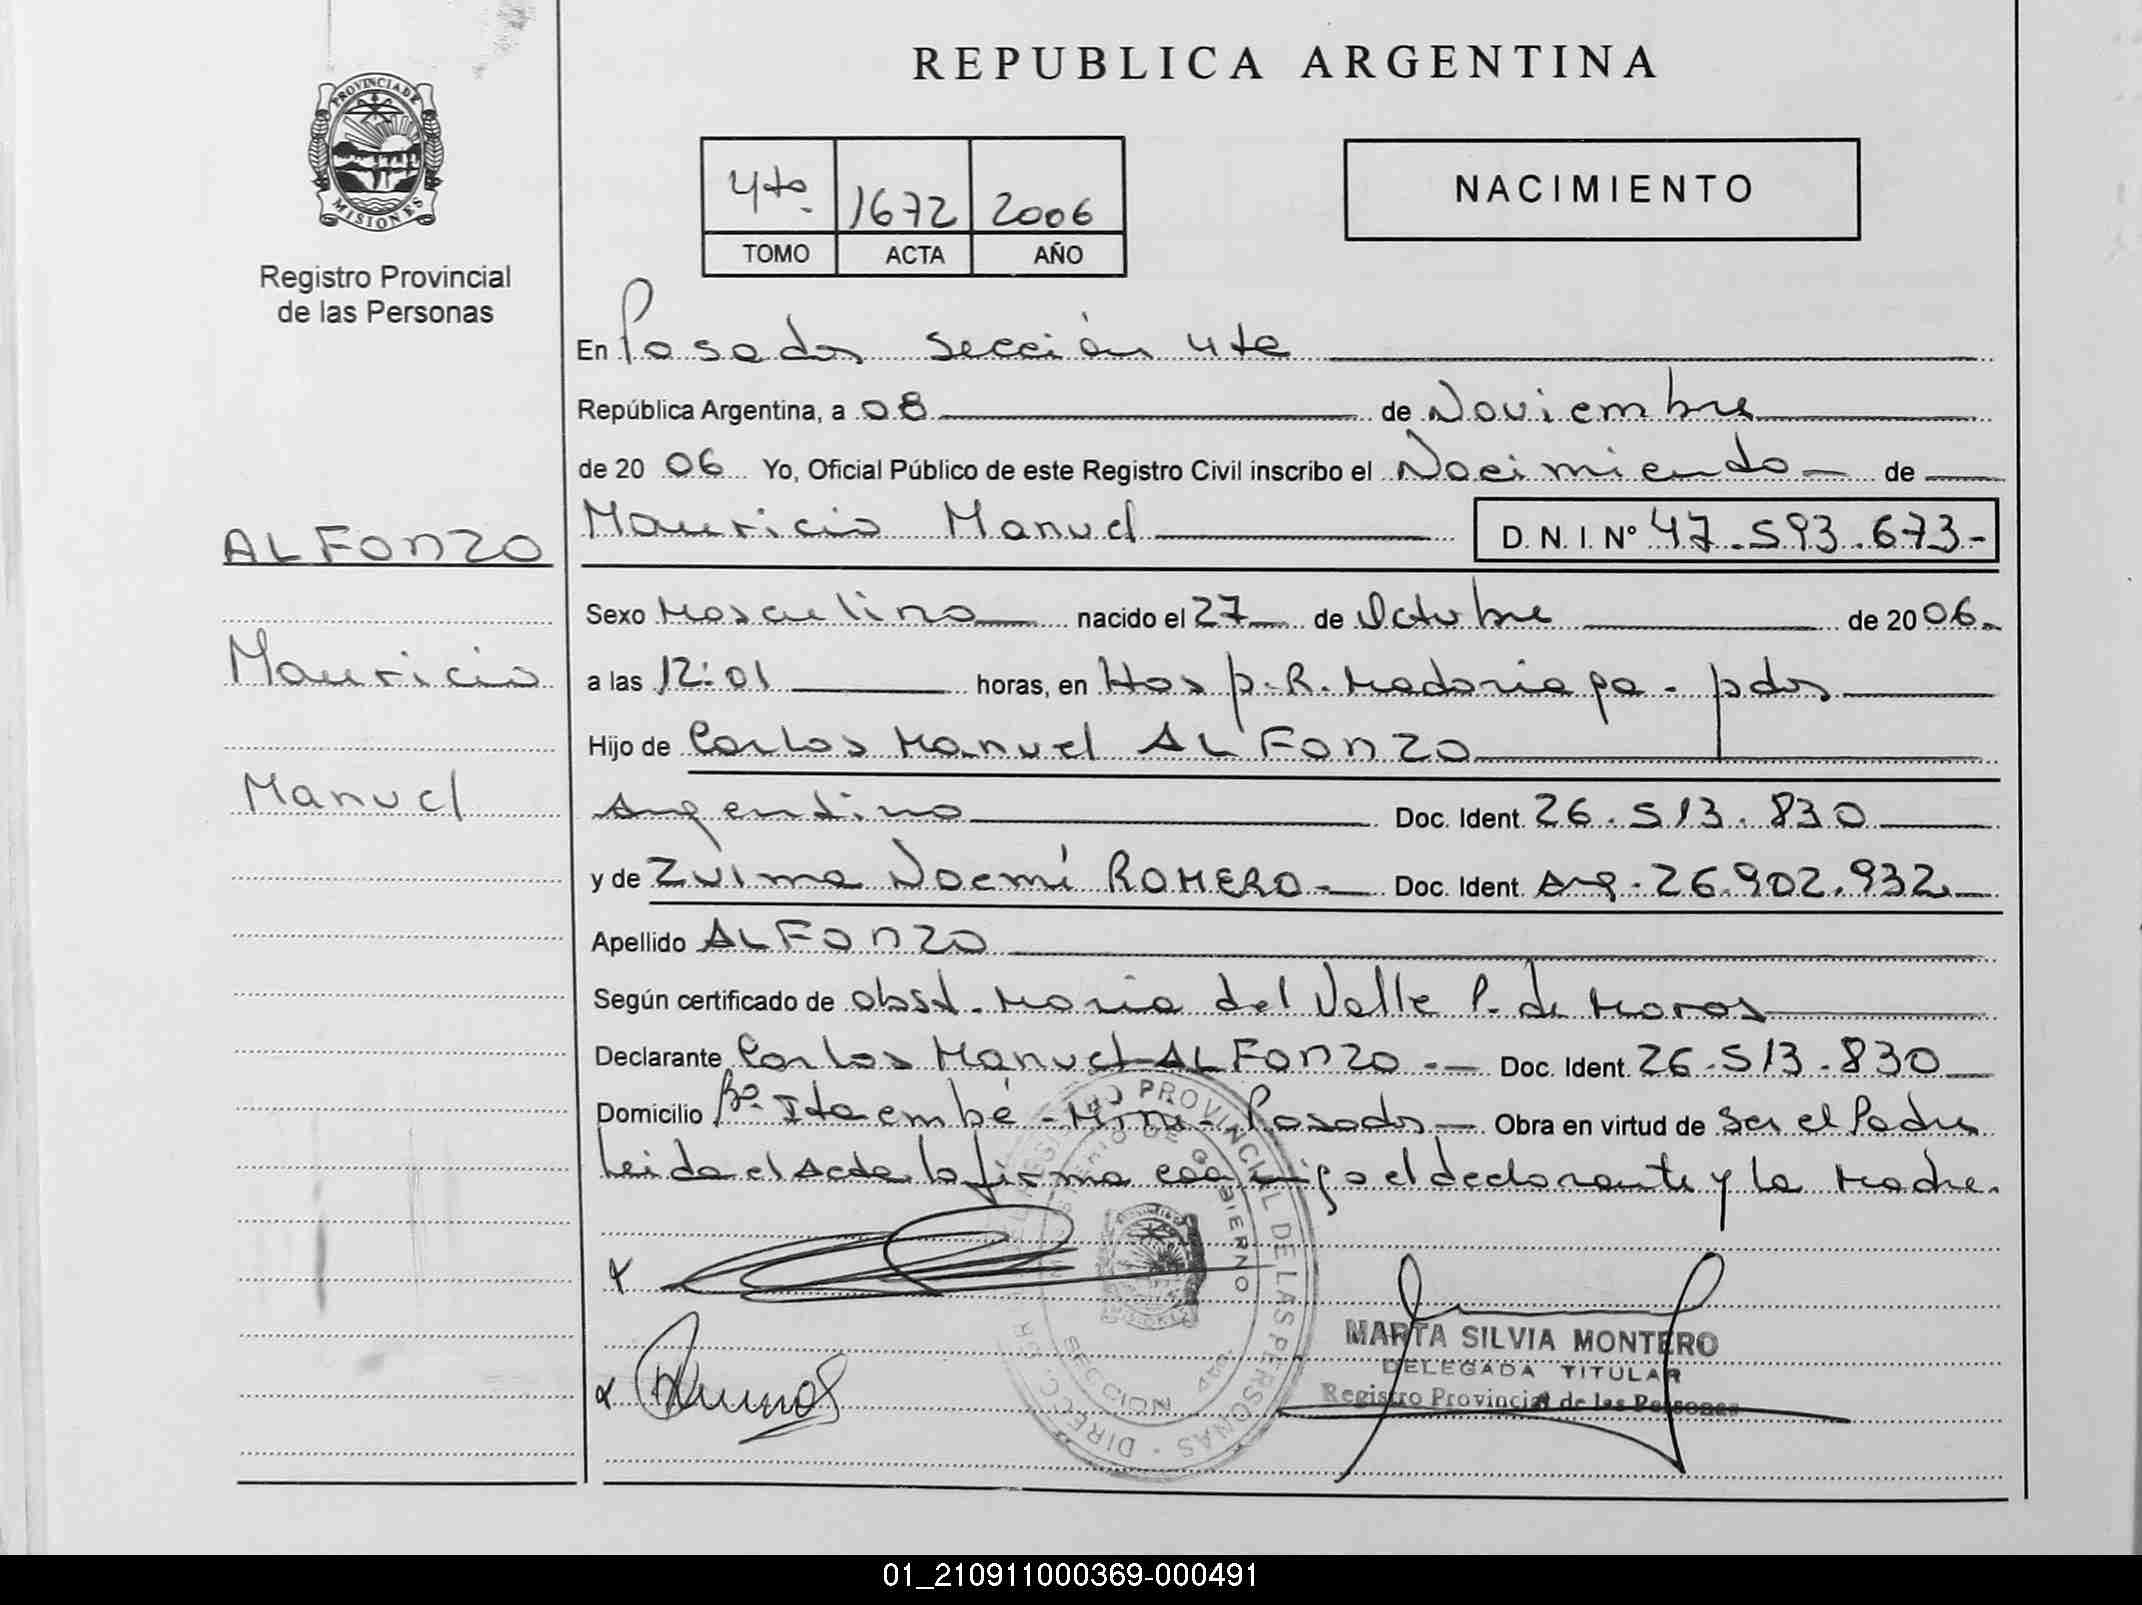 REPUBLICA ARGENTINA
PROVINCIA DE MISIONES
Registro Provincial
de las Personas
4to. 1672 2006
TOMO ACTA AÑO
NACIMIENTO
En Posadas sección 4ta
República Argentina, a 08 de Noviembre
de 2006 Yo, Oficial Público de este Registro Civil inscribo el Nacimiento de
Mauricio Manuel D. N. I. Nº 47.593.673-
ALFONZO
Mauricio
Manuel
Sexo Masculino nacido el 27 de Octubre de 2006.
a las 12:01 horas, en Hosp. R. Madariaga - pdas
Hijo de Carlos Manuel ALFONZO
Argentino Doc. Ident. 26.513.830
y de Zulma Noemí ROMERO - Doc. Ident. Arg. 26.902.932
Apellido ALFONZO
Según certificado de obst. Maria del Valle P. de Moros
Declarante Carlos Manuel ALFONZO - Doc. Ident. 26.513.830
Domicilio Bº. Itaembé - Miní - Posadas - Obra en virtud de ser el Padre
Leida el Acta la firma conmigo el declarante y la Madre.
DIRECC. GR. DEL REGISTRO PROVINCIAL DE LAS PERSONAS
MINISTERIO DE GOBIERNO
SECCION
MARTA SILVIA MONTERO
DELEGADA TITULAR
Registro Provincial de las Personas
01_210911000369-000491